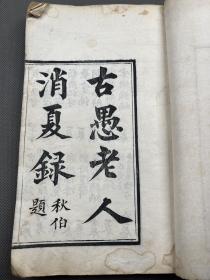 古愚老人
消夏録
秋伯題